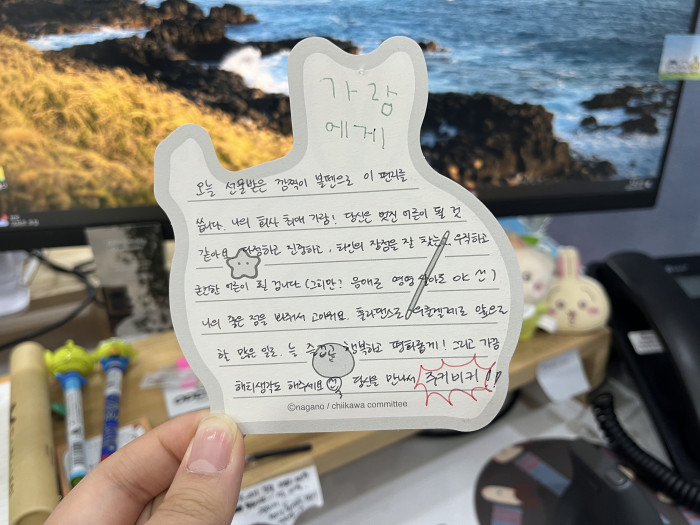 가랑
에게
오늘 선물받은 깜찍이 볼펜으로 이 편지를
씁니다. 나의 회사 최애 가랑! 당신은 멋진 어른이 될 것
같아요 다정하고 진중하고, 타인의 장점을 잘 찾는 우직하고
단단한 어른이 될 겁니다 (그치만! 응애로 영영 살아도 야 쓴)
나의 좋은 점을 봐줘서 고마워요. 앞으로
할 많은 일로. 늘 즐겁고 행복하고 평화롭게! 그리고 가끔
해티생각도 해주세요 당신을 만나서 쥬키비키!!
©nagano / chiikawa committee